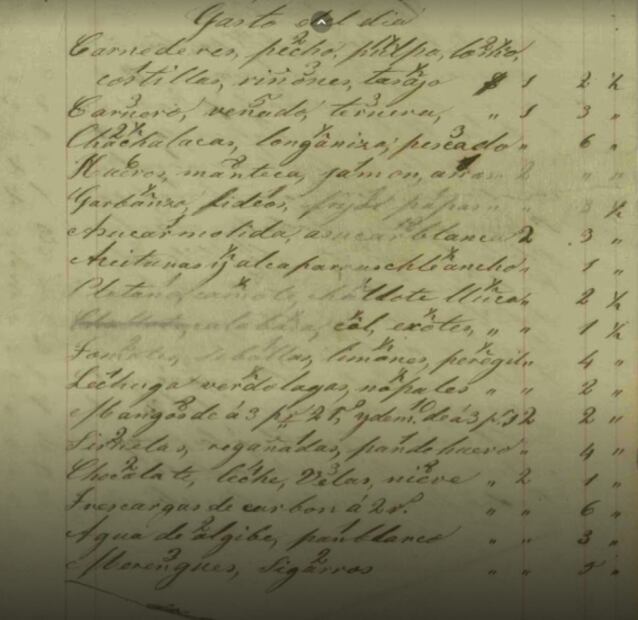 Gasto del dia
Carne de res, pecho, pulpo, lomo,
costillas, riñones, tasajo $ 1 2 ½
Carnero, venado, ternera, " 1 3 "
Chachalacas, longaniza, pescado " 6 "
Huevos, manteca, jamon, arros 2 " "
Garbanzo, fideos, papas " " 3 ½
Asucar molida, asucar blanca 2 3 "
Aceitunas y alcaparras chile ancho " 1 "
camote, chayote " 2 ½
calabasa, col, exotes, " " 1 ½
Tomates, sebollas, limones, peregil " 4 "
Lechuga verdolagas, nopales " " 2 "
Mangos de á 3 pr 2 r, y dem. de á 3 p. 2 2 "
Siruelas, regañadas, pan de huevo " 4 "
Chocolate, leche, Velas, nieve " 2 1 "
Tres cargas de carbon á 2 r. " " 6 "
Agua de algibe, pan blanco " " 3 "
Merengues, Sigarros " " 5 "